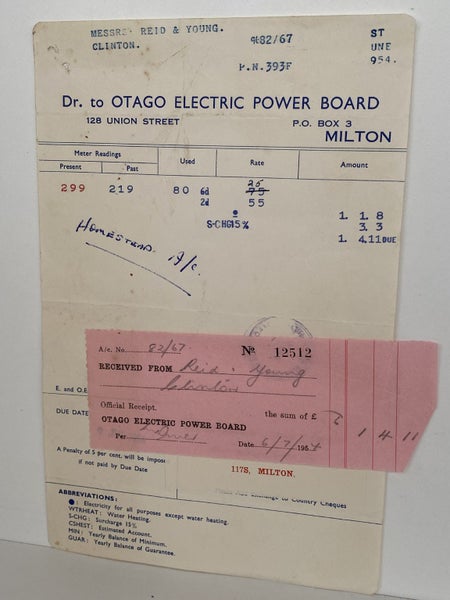 MESSRS. REID & YOUNG.
CLINTON.
82/67
ST
UNE
954.
P.N.393F
Dr. to OTAGO ELECTRIC POWER BOARD
128 UNION STREET P.O. BOX 3
MILTON
Meter Readings Used Rate Amount
Present Past
299 219 80 6d 25 75
2d 55 1. 1. 8
S-CHG15% 3. 3
1. 4.11DUE
HOMESTEAD A/C.
A/c. No. 82/67 No 12512
RECEIVED FROM Reid & Young
Clinton
E. and O.E
Official Receipt. the sum of £ 1 4 11
OTAGO ELECTRIC POWER BOARD
DUE DATE
Per Date 6/7/1954
A Penalty of 5 per cent. will be impos
if not paid by Due Date
117S, MILTON.
Exchange to Country Cheques
ABBREVIATIONS:
●: Electricity for all purposes except water heating.
WTRHEAT: Water Heating.
S-CHG: Surcharge 15%
CSHEST: Estimated Account.
MIN: Yearly Balance of Minimum.
GUAR: Yearly Balance of Guarantee.